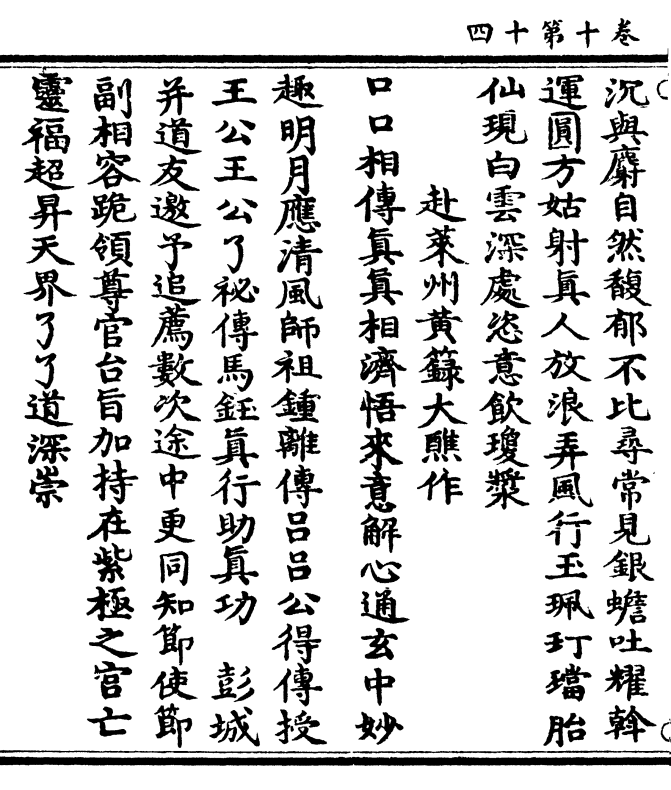 卷十第十四
沉與麝自然馥郁不比尋常見銀蟾吐耀斡
運圓方姑射真人放浪弄風行玉珮玎璫胎
仙現白雲深處恣意飲瓊漿
赴萊州黃籙大醮作
口口相傳真真相濟悟來意解心通玄中妙
趣明月應清風師祖鍾離傳呂呂公得傳授
王公王公了祕傳馬鈺真行助真功　彭城
并道友邀予追薦數次途中更同知節使節
副相容跪領尊官台旨加持在紫極之宮亡
靈福超昇天界了了道深崇